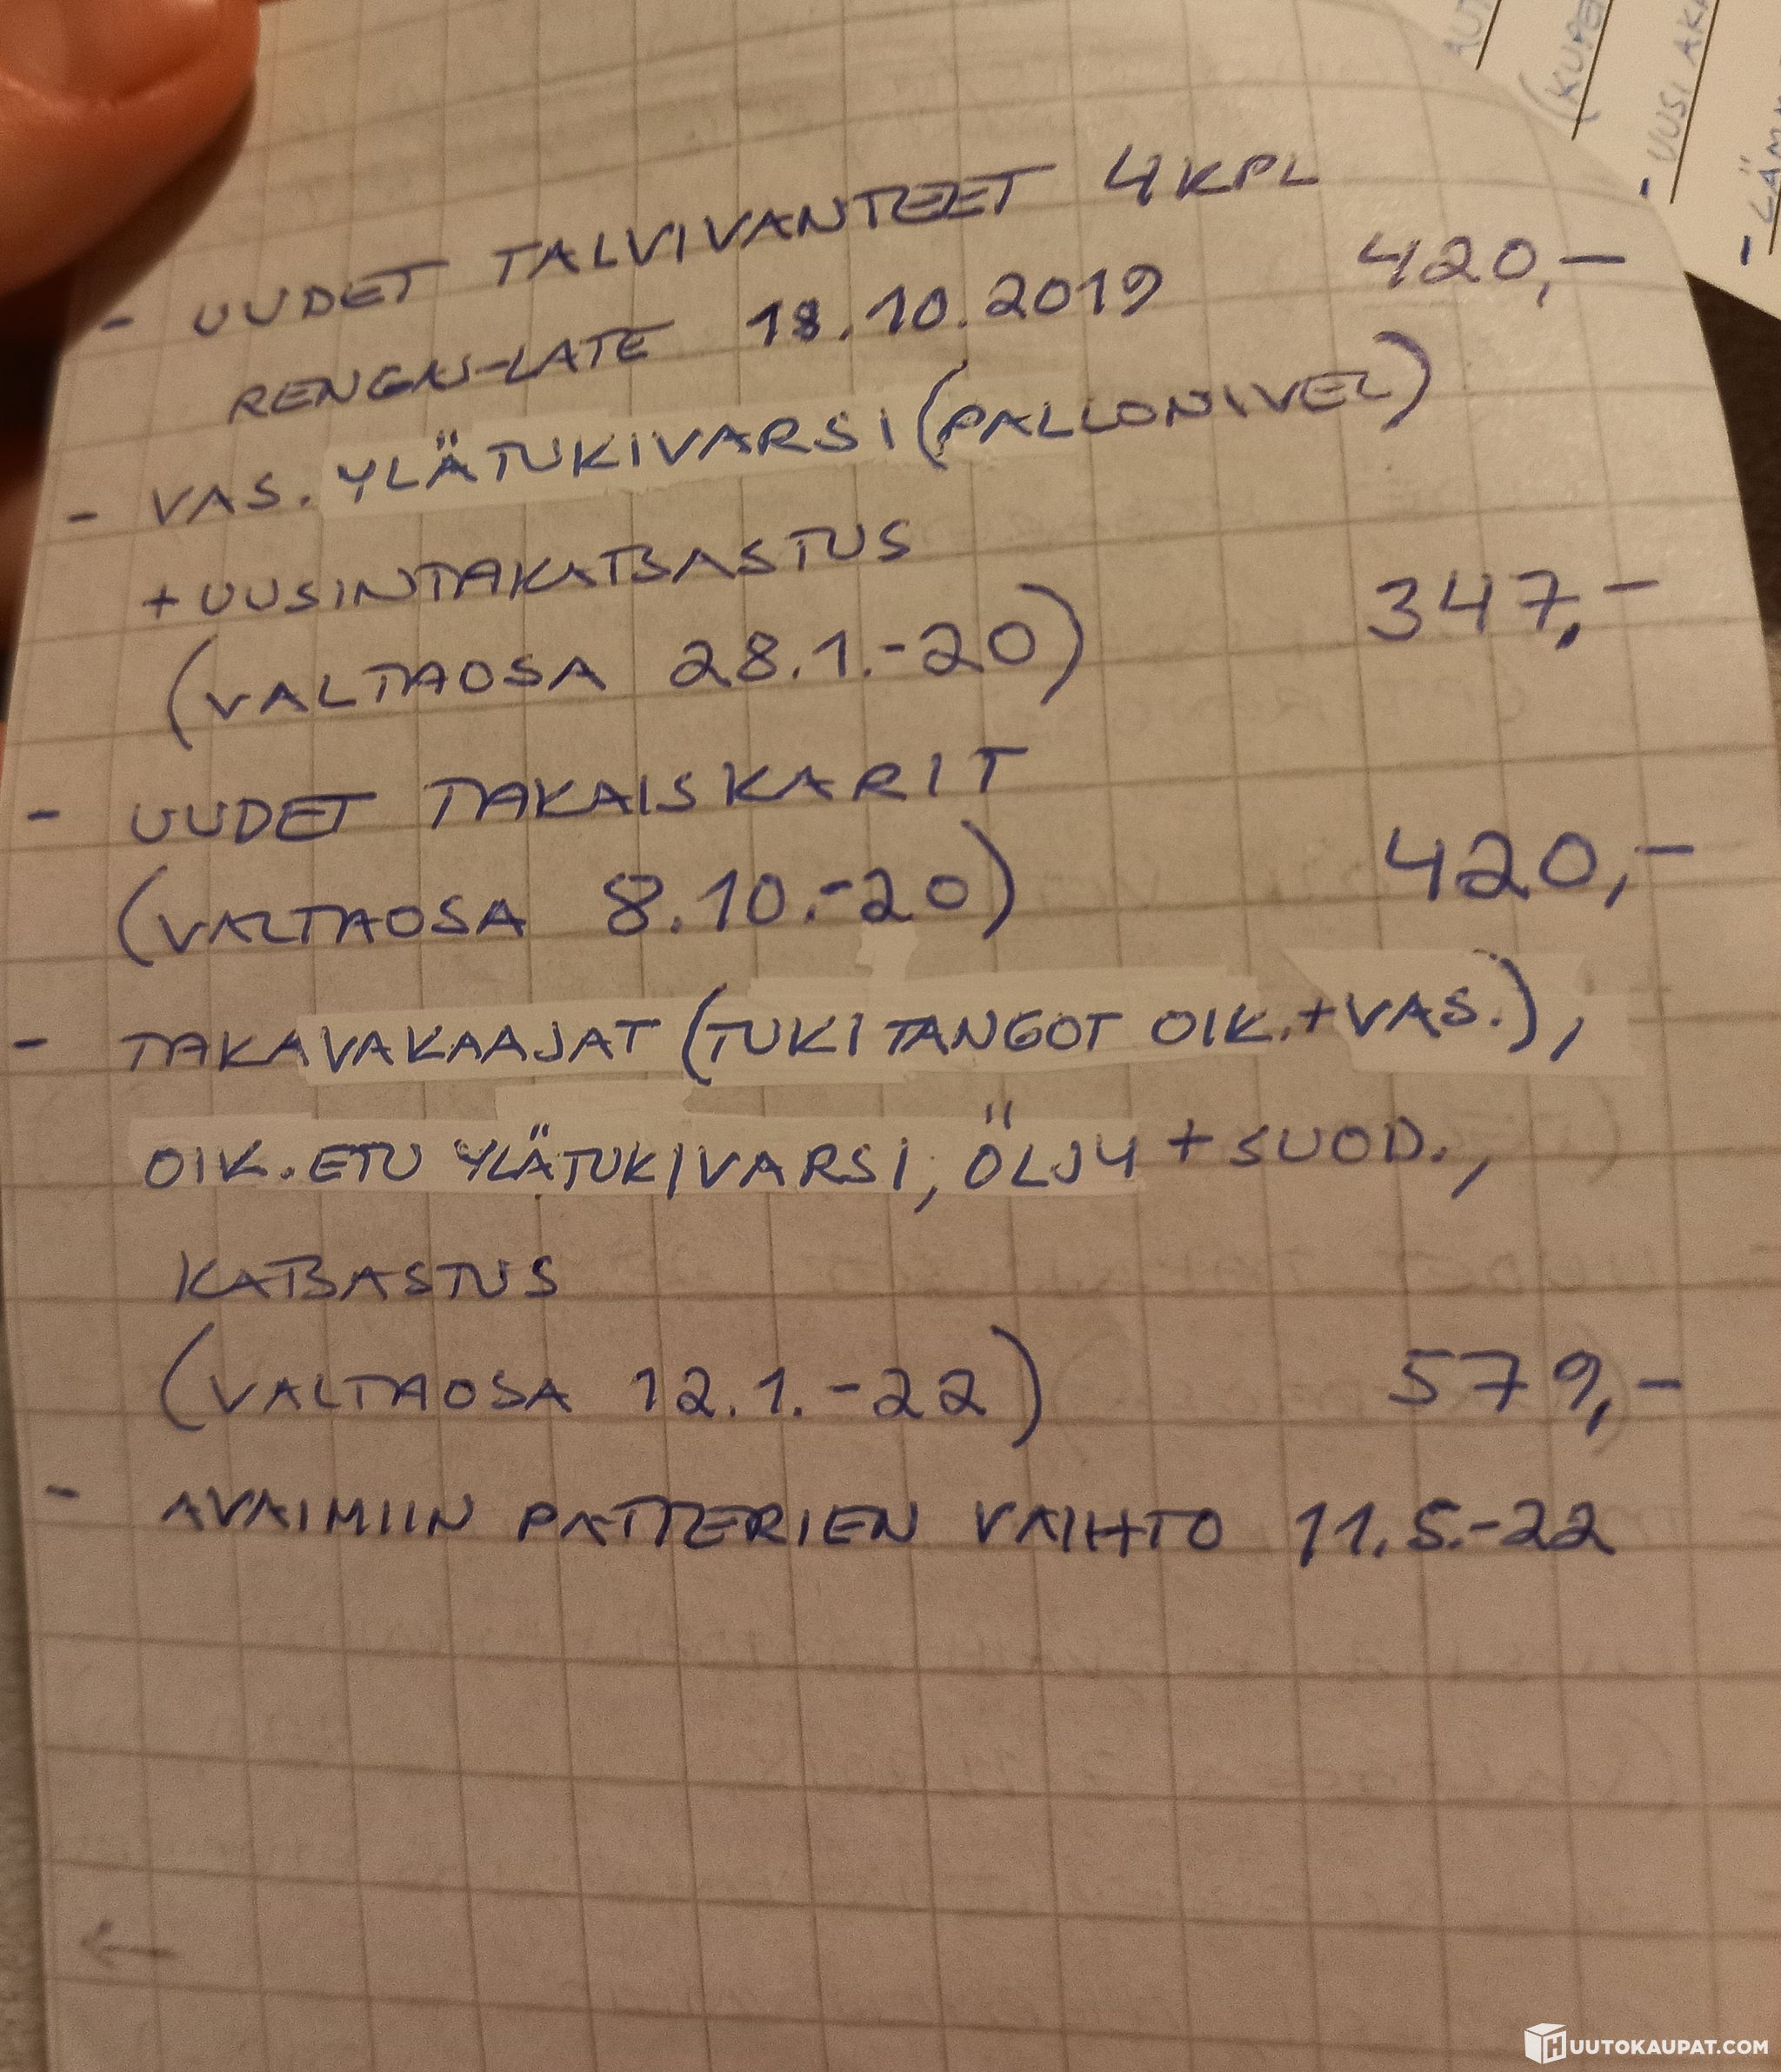 - UUDET TALVIVANTEET 4 KPL
RENGAS-LATE 18.10.2019 420,-
- VAS. YLÄTUKIVARSI (PALLONIVEL)
+ UUSINTAKATSASTUS
(VALTAOSA 28.1.-20) 347,-
- UUDET TAKAISKARIT
(VALTAOSA 8.10.-20) 420,-
- TAKAVAKAAJAT (TUKITANGOT OIK.+VAS.),
OIK. ETU YLÄTUKIVARSI, ÖLJY + SUOD.,
KATSASTUS
(VALTAOSA 12.1.-22) 579,-
- AVAIMIIN PATTERIEN VAIHTO 11.5.-22
(KUPE
- UUSI AK
- LÄM
HUUTOKAUPAT.COM